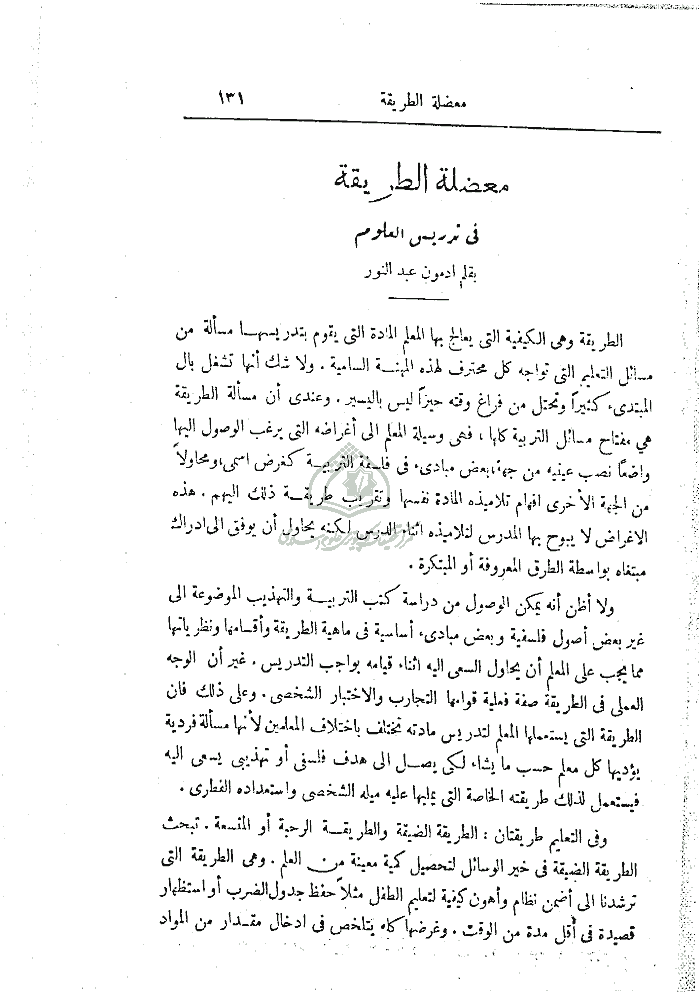 معضلة الطريقة ١٣١
معضلة الطريقة
فى تدريس العلوم
بقلم ادمون عبد النور
الطريقة وهى الكيفية التى يعالج بها المعلم المادة التى يقوم بتدريسها مسألة من
مسائل التعليم التى تواجه كل محترف لهذه المهنة السامية . ولا شك أنها تشغل بال
المبتدىء كثيراً وتحتل من فراغ وقته حيزاً ليس باليسير . وعندى أن مسألة الطريقة
هي مفتاح مسائل التربية كلها ، فهى وسيلة المعلم الى أغراضه التى يرغب الوصول اليها
واضعاً نصب عينيه من جهة،بعض مبادىء فى فلسفة التربية كغرض اسمى،ومحاولاً
من الجهة الأخرى افهام تلاميذه المادة نفسها وتقريب طريقة ذلك اليهم . هذه
الاغراض لا يبوح بها المدرس لتلاميذه اثناء الدرس لكنه يحاول أن يوفق الى ادراك
مبتغاه بواسطة الطرق المعروفة أو المبتكرة .
ولا أظن أنه يمكن الوصول من دراسة كتب التربية والتهذيب الموضوعة الى
غير بعض أصول فلسفية وبعض مبادىء أساسية فى ماهية الطريقة وأقسامها ونظرياتها
مما يجب على المعلم أن يحاول السعى اليه اثناء قيامه بواجب التدريس . غير أن الوجه
العملى فى الطريقة صفة فعلية قوامها التجارب والاختبار الشخصى . وعلى ذلك فان
الطريقة التى يستعملها المعلم لتدريس مادته تختلف باختلاف المعلمين لأنها مسألة فردية
يؤديها كل معلم حسب ما يشاء لكى يصل الى هدف فلسفى أو تهذيبى يسعى اليه
فيستعمل لذلك طريقته الخاصة التى يمليها عليه ميله الشخصى واستعداده الفطرى .
وفى التعليم طريقتان : الطريقة الضيقة والطريقة الرحبة أو المتسعة . تبحث
الطريقة الضيقة فى خير الوسائل لتحصيل كمية معينة من العلم . وهى الطريقة التى
ترشدنا الى أضمن نظام وأهون كيفية لتعليم الطفل مثلاً حفظ جدول الضرب أو استظهار
قصيدة فى أقل مدة من الوقت . وغرضها كله يتلخص فى ادخال مقدار من المواد